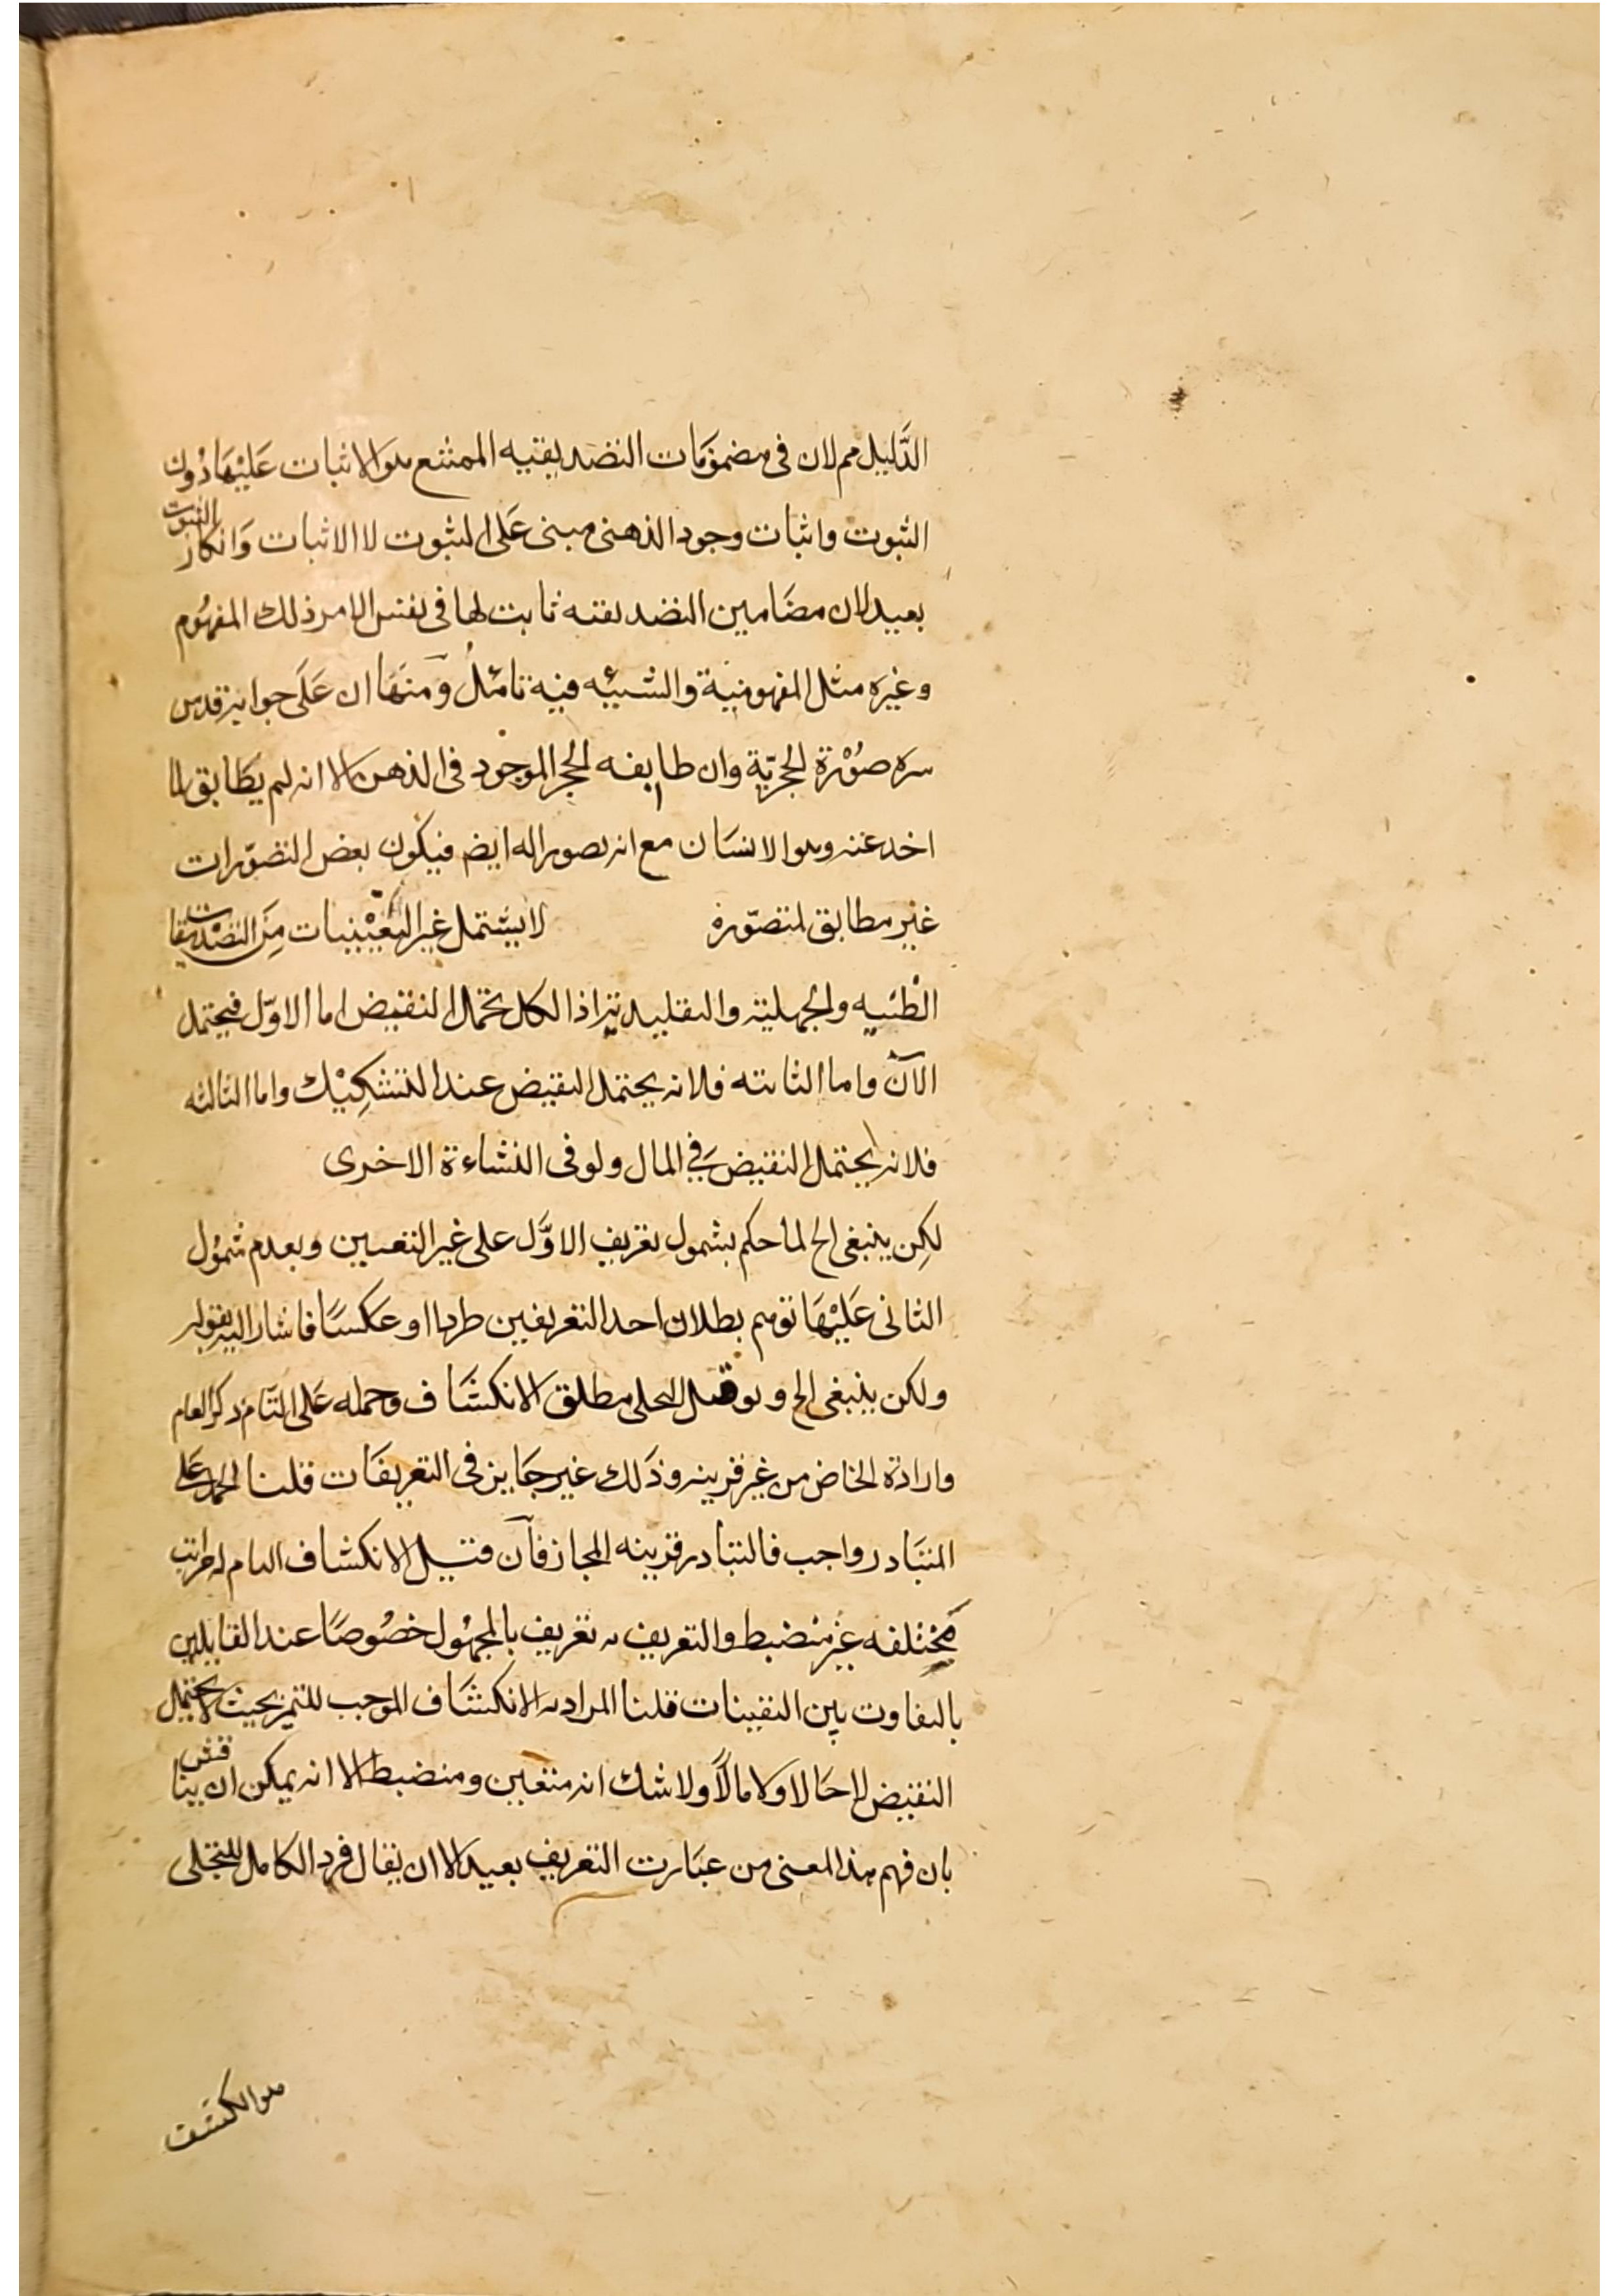 الدَّليل مم لان فى مضمومَات التصديقيه الممتنع هو الاثبات عَليْهَا دُون
الثبوت واثبات وجود الذهنى مبنى عَلى الثبوت لا الاثبات وَانكار الثبوت
بعيد لان مضَامين التصديقيه ثابت لها فى نفس الامر ذلك المفهُوم
وغيره مثل المفهوميّة والشيئيه فيه تامّلُ وَمنهَا ان عَلَى جوابه قدس
سره صُوْرَة الحجريّة وان طابقه الحجر الموجود فى الذهن الا انه لم يطَابق لما
اخد عنه وهو الانسَان مع انه تصور اله ايضم فيكون بعض التصوّرات
غير مطابق لمتصوّره لا يشتمل غير اليَقيْنيات مِنَ التصْديقات
الظنيه والجهليّة والتقليديّة اذ الكل يحتمل النقيض اما الاوّل فيحتمل
الآن واما الثانيه فلانه يحتمل النقيض عند التشكِيْك واما الثالثه
فلانه يحتمل النقيض فِي المال ولو فى النشاءة الاخرى
لكِن ينبغى الخ لما حكم بشمول تعريف الاوَّل على غير اليقين وبعدم شمُول
الثانى عَليْهَا توهم بطلان احد التعريفين طردا او عَكسًا فاشار اليه بقوله
ولكن ينبغى الخ و لو قيل التجلى مطلق الانكشَاف وحمله عَلى التّام ذكر العام
وارادة الخاص من غير قرينه وذَلك غير جَايز فى التعريفَات قلنا الحمل عَلى
المتبَادر واجب فالتبادر قرينه المجاز فآن قيل الانكشاف التام له مراتب
مُخْتلفه غيْر منضبط والتعريف به تعريف بالمجهُول خصُوصًا عند القايلين
بالتفاوت بين اليقينات قلنا المراد به الانكشَاف الموجب للتميز بحيث لا يحتمل
النقيض لا حَالا ولا مآلاً ولا شك انه متعين ومنضبط الا انه يمكن ان يناقش
بان فهم هذا المعنى من عبَارت التعريف بعيد الا ان يقال فرد الكامل للتجلى
هو الكشف